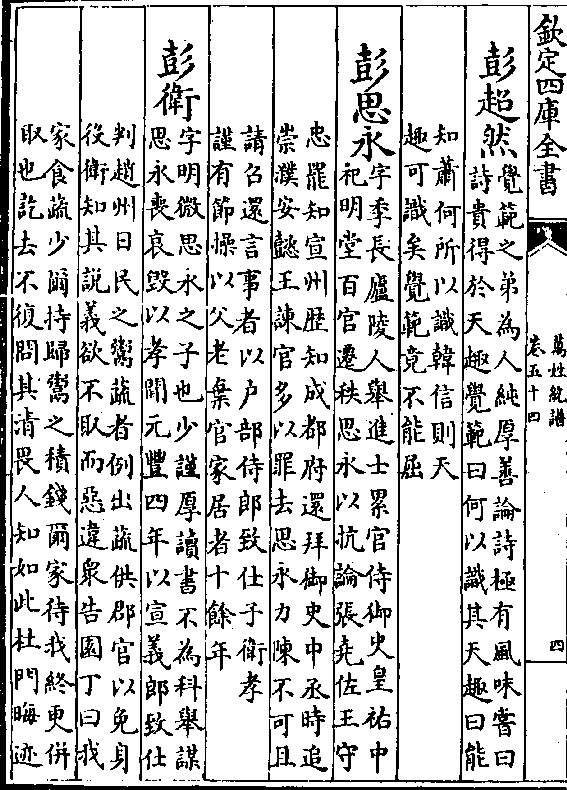 欽定四庫全書
萬姓統譜
卷五十四
四
彭超然
覺範之弟為人純厚善論詩極有風味嘗曰
詩貴得於天趣覺範曰何以識其天趣曰能
知蕭何所以識韓信則天
趣可識矣覺範竟不能屈
彭思永
字季長廬陵人舉進士累官侍御史皇祐中
祀明堂百官遷秩思永以抗論張堯佐王守
忠罷知宣州歴知成都府還拜御史中丞時追
崇濮安懿王諫官多以罪去思永力陳不可且
請召還言事者以户部侍郎致仕子衛孝
謹有節操以父老棄官家居者十餘年
彭衛
字明微思永之子也少謹厚讀書不為科舉謀
思永喪哀毀以孝聞元豐四年以宣義郎致仕
判趙州日民之鬻蔬者例出蔬供郡官以免身
役衛知其說義欲不取而惡違衆告園丁曰我
家食蔬少爾持歸鬻之積錢爾家待我終更併
取也訖去不復問其清畏人知如此杜門晦迹